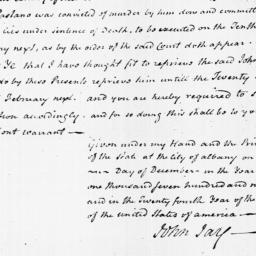 Pastano was convicted of murder by him done and committ
lies under sentence of Death, to be executed on the Tenth
ry next, as by the order of the said Court doth appear.
Ye that I have thought fit to reprieve the said John
do by these Presents reprieve him untill the Twenty
February next. and you are hereby required to s
tion accordingly. and for so doing this shall be to yo
ient warrant —
Given under my Hand and the Priv
of the State at the city of albany on
Day of December in the year
one thousand seven hundred and n
and in the Twenty fourth year of the
of the united States of america —
John Jay —